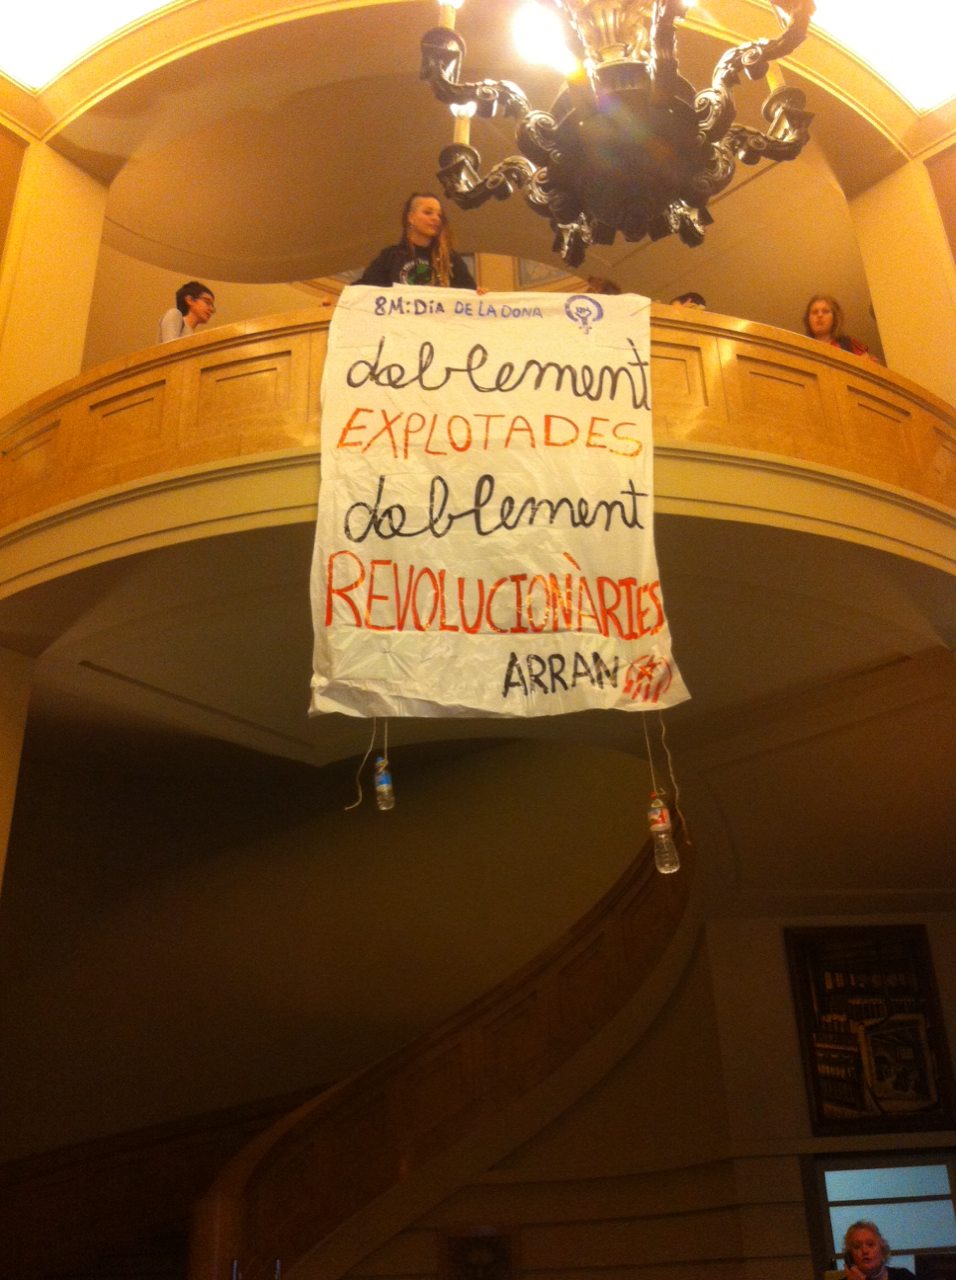 8M: DiA DE LA DONA
doblement
EXPLOTADES
doblement
REVOLUCIONÀRIES
ARRAN